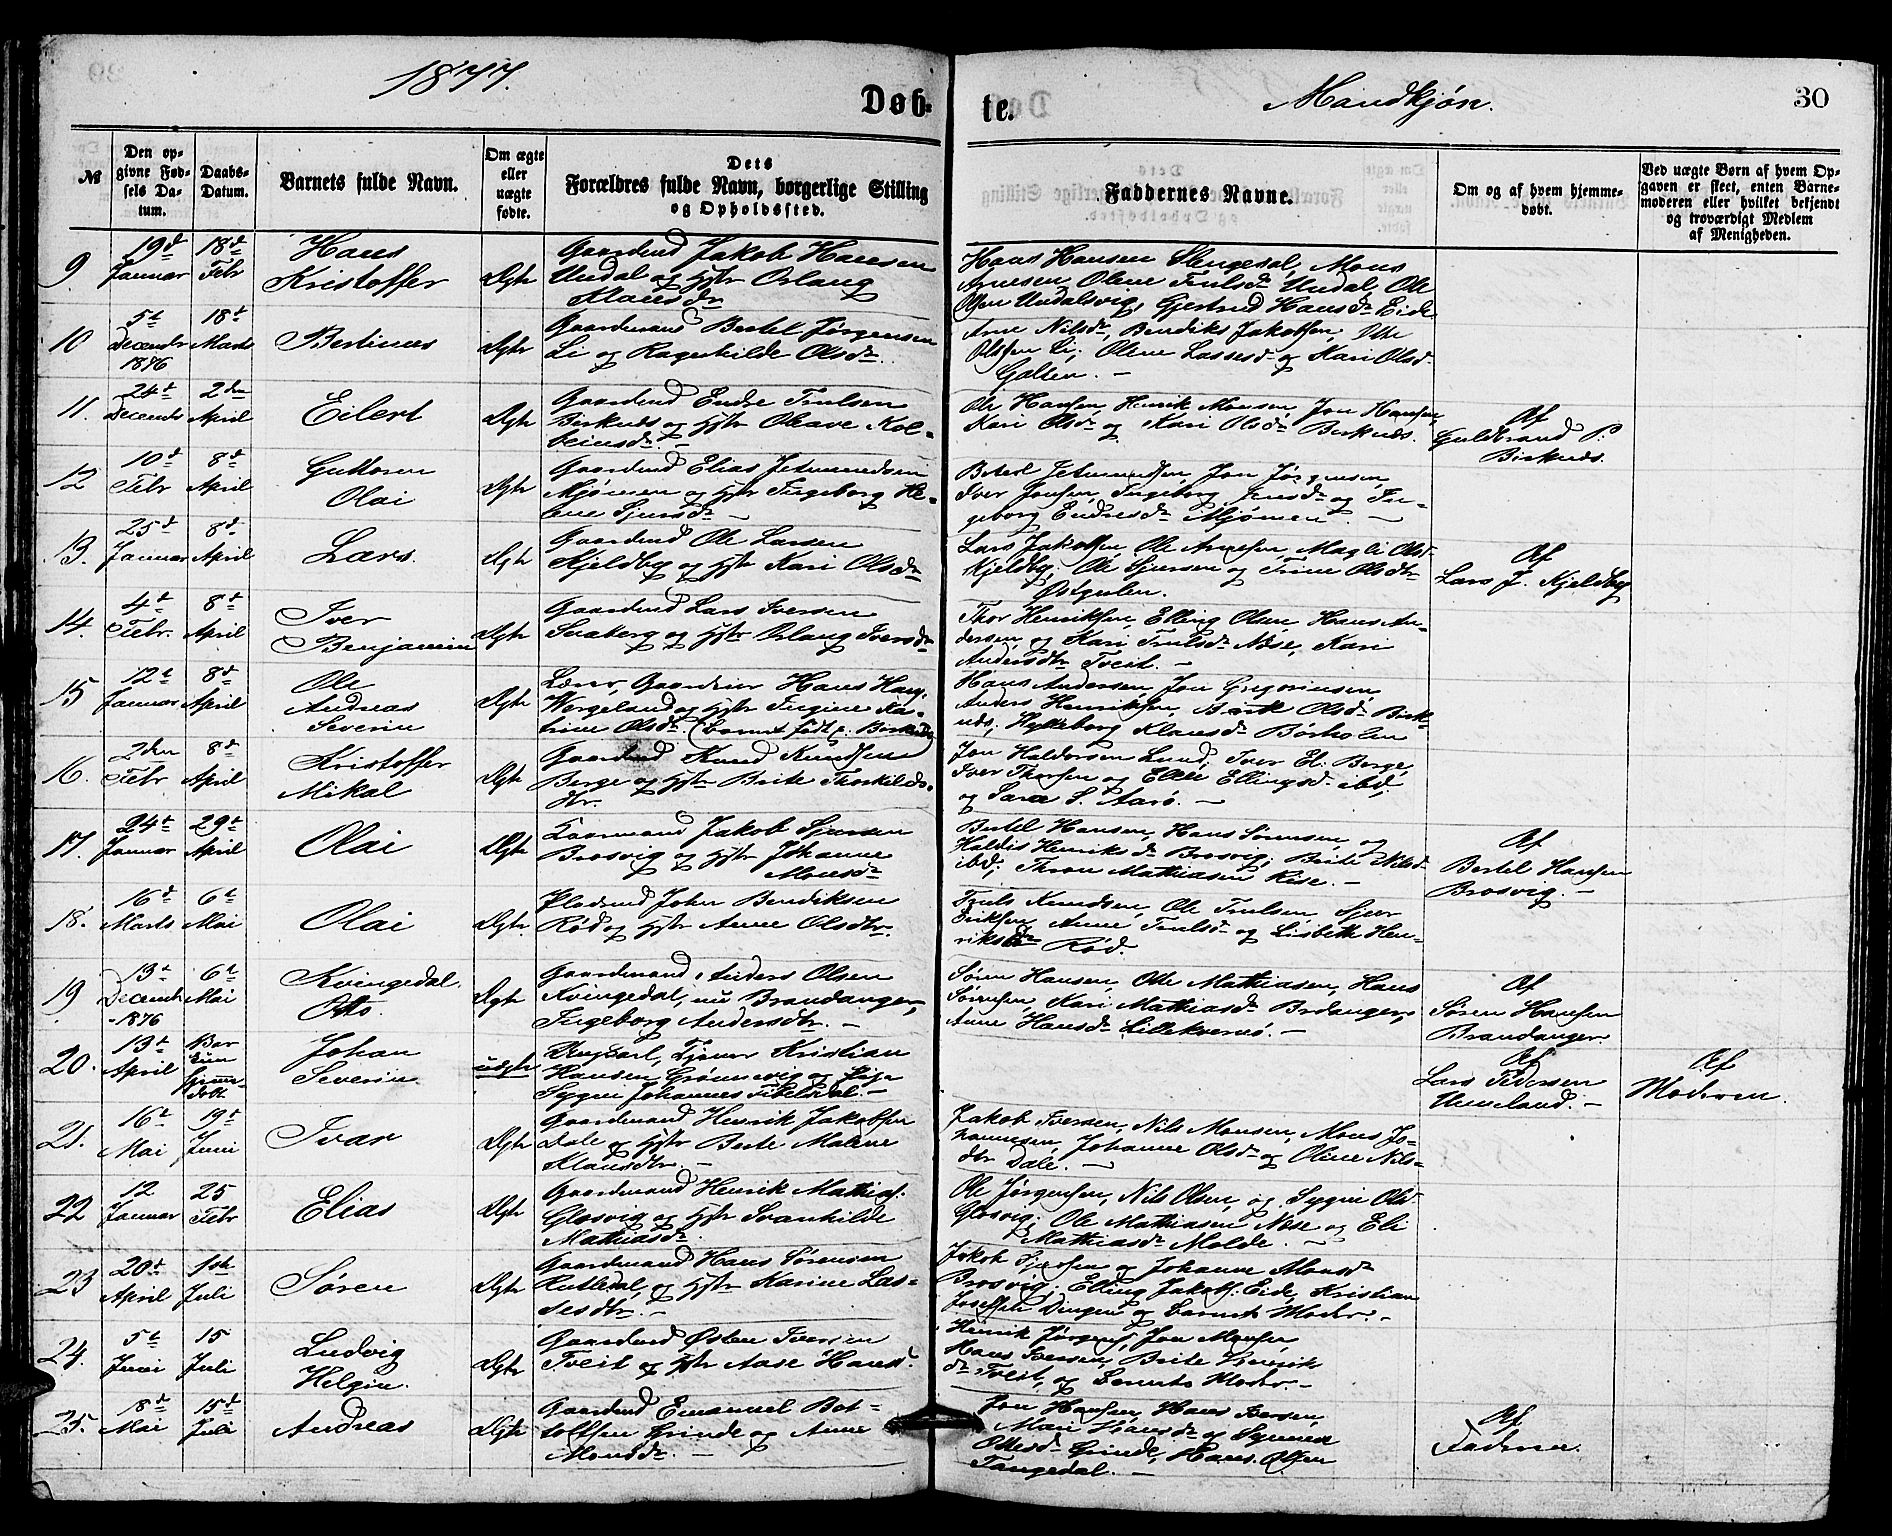 1877.
Døb-
te.
Mandkjøn.
30
№
Den op-
givne Fød-
sels Da-
tum.
Daabs-
Datum.
Barnets fulde Navn.
Om ægte
eller
uægte
fødte.
Dets
Forældres fulde Navn, borgerlige Stilling
og Opholdssted.
Faddernes Navne.
Om og af hvem hjemme-
døbt.
Ved uægte Børn af hvem Op-
gaven er skeet, enten Barne-
moderen eller hvilket bekjendt
og troværdigt Medlem
af Menigheden.
9
19de
Januar
18de
Febr
Hans
Kristoffer
Ægte
Gaardmd Jakob Hansen
Undal og Hstr Oslaug
Klausdr
Hans Hansen Slengesol, Mons
Arnesen, Olene Trulsdr Undal, Ole
Olsen Undalsvig, Gjertrud Hansdr Eide
10
5te
Decembr
1876
18de
Marts
Bertines
Ægte
Gaardmand Bertel Jørgensen
Li og Ragnhilde Olsdr
Arne Nilsdr, Bendiks Jakobsen, Ole
Olsen Li; Olene Lassesdr og Kari Olsd.
Galten. -
11.
24de
Decembr
2den
April
Eilert
Ægte
Gaardmd Endre Trulsen
Birknes og Hstr Oleave Kol-
beinsdr
Ole Hansen, Henrik Monsen, Jon Hansen,
Kari Olsdr og Kari Olsdr Birknes.
Af
Guldbrand P.
Birknes.
12
10de
Febr
8de
April
Guttorm
Olai
Ægte
Gaardmd Elias Jetmundsen
Mjømen og Hstr Ingeborg He-
lene Sjursdr
Bertel Jetmundsen, Jon Jørgensen,
Iver Jonsen, Ingeborg Jensdr og In-
geborg Endresdr Mjømen. -
13.
25de
Januar
8de
April
Lars.
Ægte
Gaardmd Ole Larsen
Kjeldby og Hstr Kari Olsdr
Lars Jakobsen, Ole Arnesen, Magli Olsd
Kjeldby; Ole Sjursen og Trine Olsdtr
Østgulen.
Af
Lars J. Kjeldby
14.
4de
Febr.
8de
April
Iver
Benjamin
Ægte
Gaardmd Lars Iversen
Snaberg og Hstr Oslaug Iversdr
Thor Henriksen, Elling Olsen, Hans An-
dersen og Kari Trulsdr Nøse, Kari
Andersdtr Tveit. -
15
12te
Januar
8de
April
Ole
Andreas
Severin
Ægte
Lærer, Gaardeier Hans Haug.
Wergeland og Hstr Ingine Ka-
trine Olsdr. (barnet født p. Birknes)
Hans Andersen, Jon Gregoriusen,
Anders Henriksen, Berit Olsdr Birk-
nes, Hylleborg Klausdr Børholm
16.
2den
Febr
8de
April
Kristoffer
Mikal
Ægte
Gaardmd Knud Knudsen
Berge og Hstr Brite Thorkilds-
dtr.
Jon Haldorsen Lund; Iver El. Berge,
Iver Thorsen og Ellen Ellingsdr ibd;
og Sara S. Aarø. -
17.
24de
Januar
29de
April
Olai
Ægte
Gaarmand Jakob Sjursen
Brosvig og Hstr Johanne
Monsdr
Bertel Hansen, Hans Sørensen og
Haldis Henriksdr Brosvig; Brite Nilsd
ibd; Thron Mathiasen Rise. -
Af
Bertel Hansen
Brosvig. -
18.
16de
Marts
6te
Mai
Olai
Ægte.
Pladsmd John Bendiksen
Rød og Hstr Anne Olsdtr.
Truls Knudsen, Ole Trulsen, Sjur
Eriksen, Anne Trulsdr og Lisbeth Hen-
riksdr Rød.
19
13de
Decembr
-1876
6te
Mai
Kvingedal.
Otto.
Ægte
Gaardmand Anders Olsen
Kvingedal, nu Brandanger,
Ingeborg Andersdtr. -
Søren Hansen, Ole Mathiasen, Hans
Sørensen, Kari Mathiasdr Brdanger,
Anne Hansdr Lillekvernø. -
Af
Søren Hansen
Brandanger
20.
13de
April
Bar
kun
hjemme-
døbt.
Johan
Severin
uægte
Ungkarl, Tjener Kristian
Hansen Grønevig og Pige
Sygni Johannes Tibeldal. -
Af
Lars Pedersen
Unneland. -
Af
Moderen.
21.
16de
Mai
19de
Juni
Ivar
Ægte
Gaardmand Henrik Jakobsen
Dale og Hstr Berte Malene
Klausdtr. -
Jakob Iversen, Nils Monsen, Mons Jo-
hannesen, Johanne Olsdr og Oline Nils-
dtr Dale. -
22
12
Januar
25
Febr
Elias
Ægte
Gaardmand Henrik Mathias.
Glosvig og Hstr Svanhilde
Mathiasdr.
Ole Jørgensen, Nils Olsen, og Sygni Olsd
Glosvig; Ole Mathiasen Nøse og Eli
Mathiasdr Molde.
23
20de
April
1ste
Juli
Søren
Ægte
Gaardmand Hans Sørensen
Rutledal, og Hstr Karine Las-
sesdtr. -
Jakob Sjursen og Johanne Monsdr
Brosvig; Elling Jakobs. Eide, Kristian
Josefsen Dingen og Barnets Moder. -
24.
5te
Juni
15
Juli
Ludvig
Helgin.
Ægte
Gaardmd Østen Iversen
Tveit og Hstr Aase Hansd.
Henrik Jørgens, Jon Monsen,
Hans Iversen, Brite Henriks
dr Tveit, og Barnets Moder. -
25.
18de
Mai
15de
Juli
Andreas
Ægte
Gaardmd Emanuel Bot-
tolfsen Grinde og Anne
Monsdr. -
Jon Hansen, Hans Iversen,
Mari Hansdr og Synneva
Ottesdr Grinde, Hans Olsen
Tangedal. -
Af
Faderen.